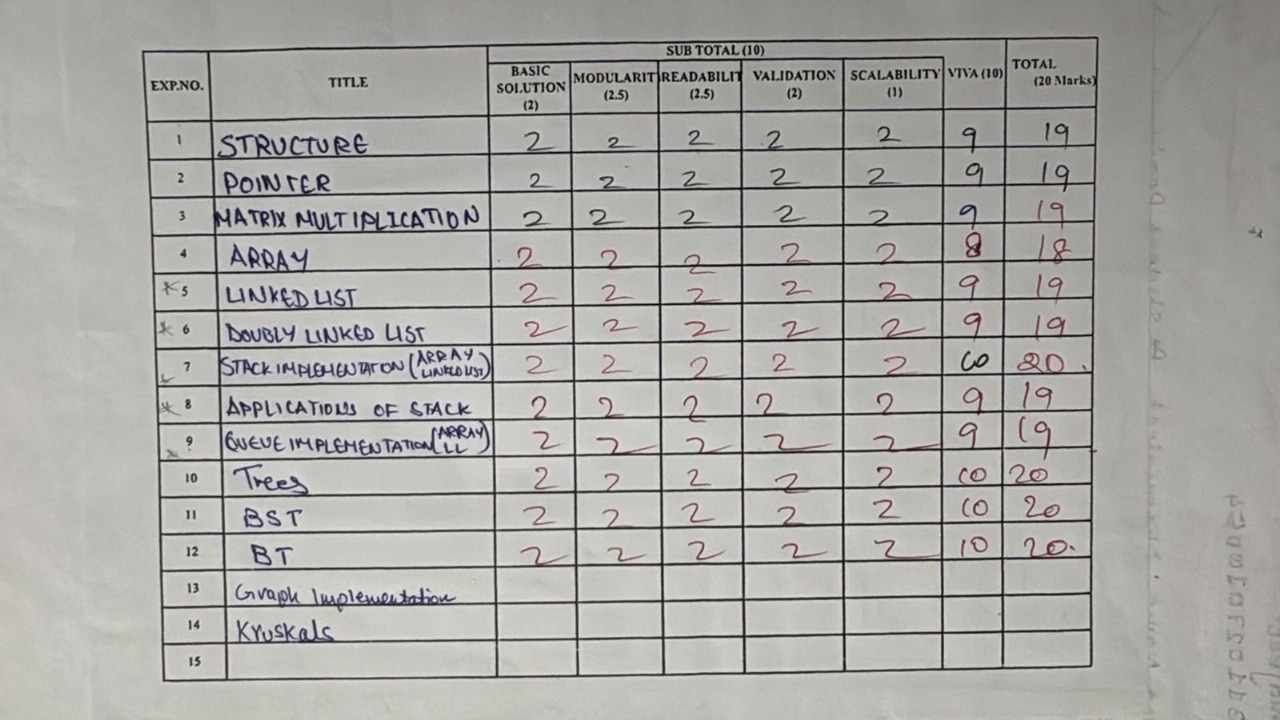 SUB TOTAL (10)
EXP.NO. TITLE BASIC SOLUTION (2) MODULARIT (2.5) READABILIT (2.5) VALIDATION (2) SCALABILITY (1) VIVA (10) TOTAL (20 Marks)
1 STRUCTURE 2 2 2 2 2 9 19
2 POINTER 2 2 2 2 2 9 19
3 MATRIX MULTIPLICATION 2 2 2 2 2 9 19
4 ARRAY 2 2 2 2 2 8 18
* 5 LINKED LIST 2 2 2 2 2 9 19
* 6 DOUBLY LINKED LIST 2 2 2 2 2 9 19
7 STACK IMPLEMENTATION (ARRAY LINKED LIST) 2 2 2 2 2 10 20.
* 8 APPLICATIONS OF STACK 2 2 2 2 2 9 19
9 QUEUE IMPLEMENTATION (ARRAY LL) 2 2 2 2 2 9 19
10 Trees 2 2 2 2 2 10 20
11 BST 2 2 2 2 2 10 20
12 BT 2 2 2 2 2 10 20.
13 Graph Implementation
14 Kruskals
15